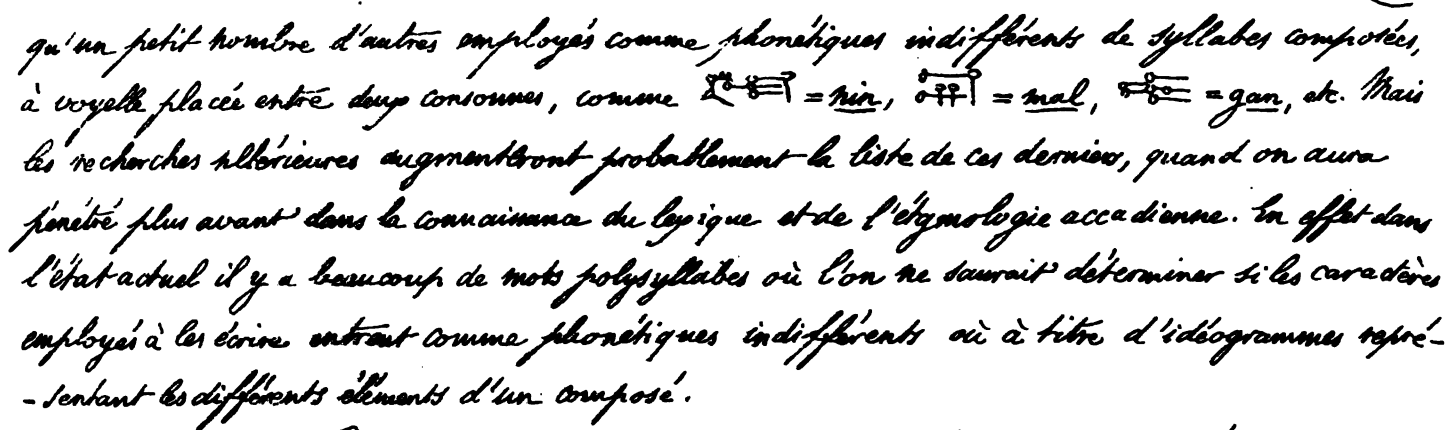 qu'un petit nombre d'autres employés comme phonétiques indifférents de syllabes composées,
à voyelle placée entre deux consonnes, comme = nin, = mal, = gan, etc. Mais
les recherches ultérieures augmenteront probablement la liste de ces derniers, quand on aura
pénétré plus avant dans la connaissance du lexique et de l'étymologie accadienne. En effet dans
l'état actuel il y a beaucoup de mots polysyllabes où l'on ne saurait déterminer si les caractères
employés à les écrire entrent comme phonétiques indifférents où à titre d'idéogrammes repré-
-sentant les différents éléments d'un composé.